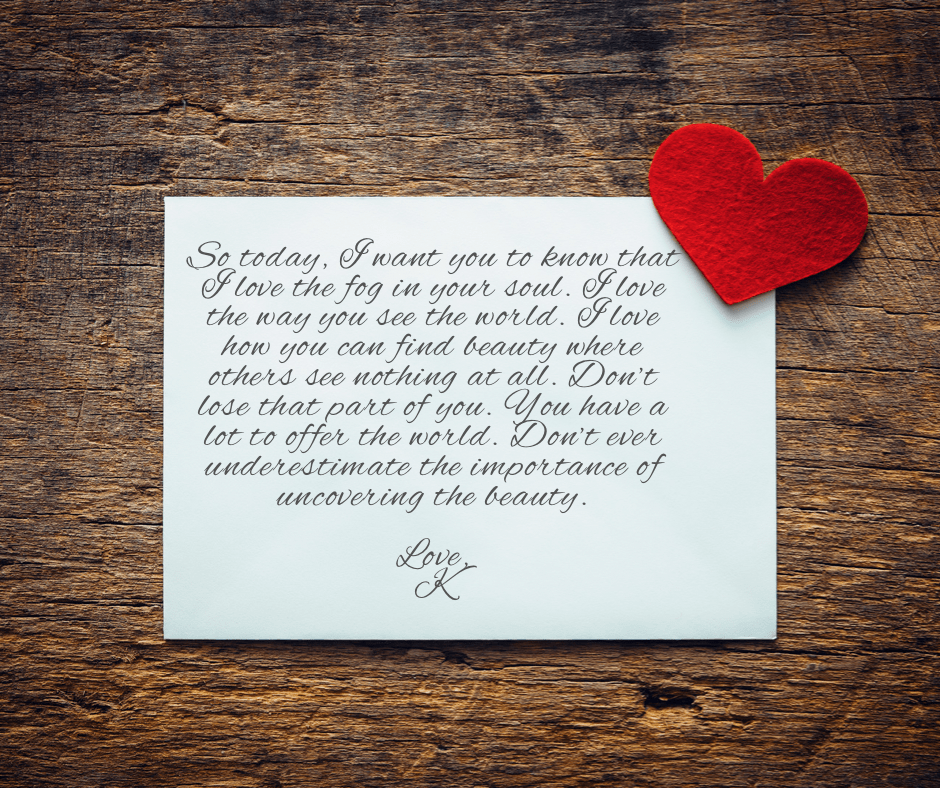 So today, I want you to know that
I love the fog in your soul. I love
the way you see the world. I love
how you can find beauty where
others see nothing at all. Don't
lose that part of you. You have a
lot to offer the world. Don't ever
underestimate the importance of
uncovering the beauty.
Love,
K